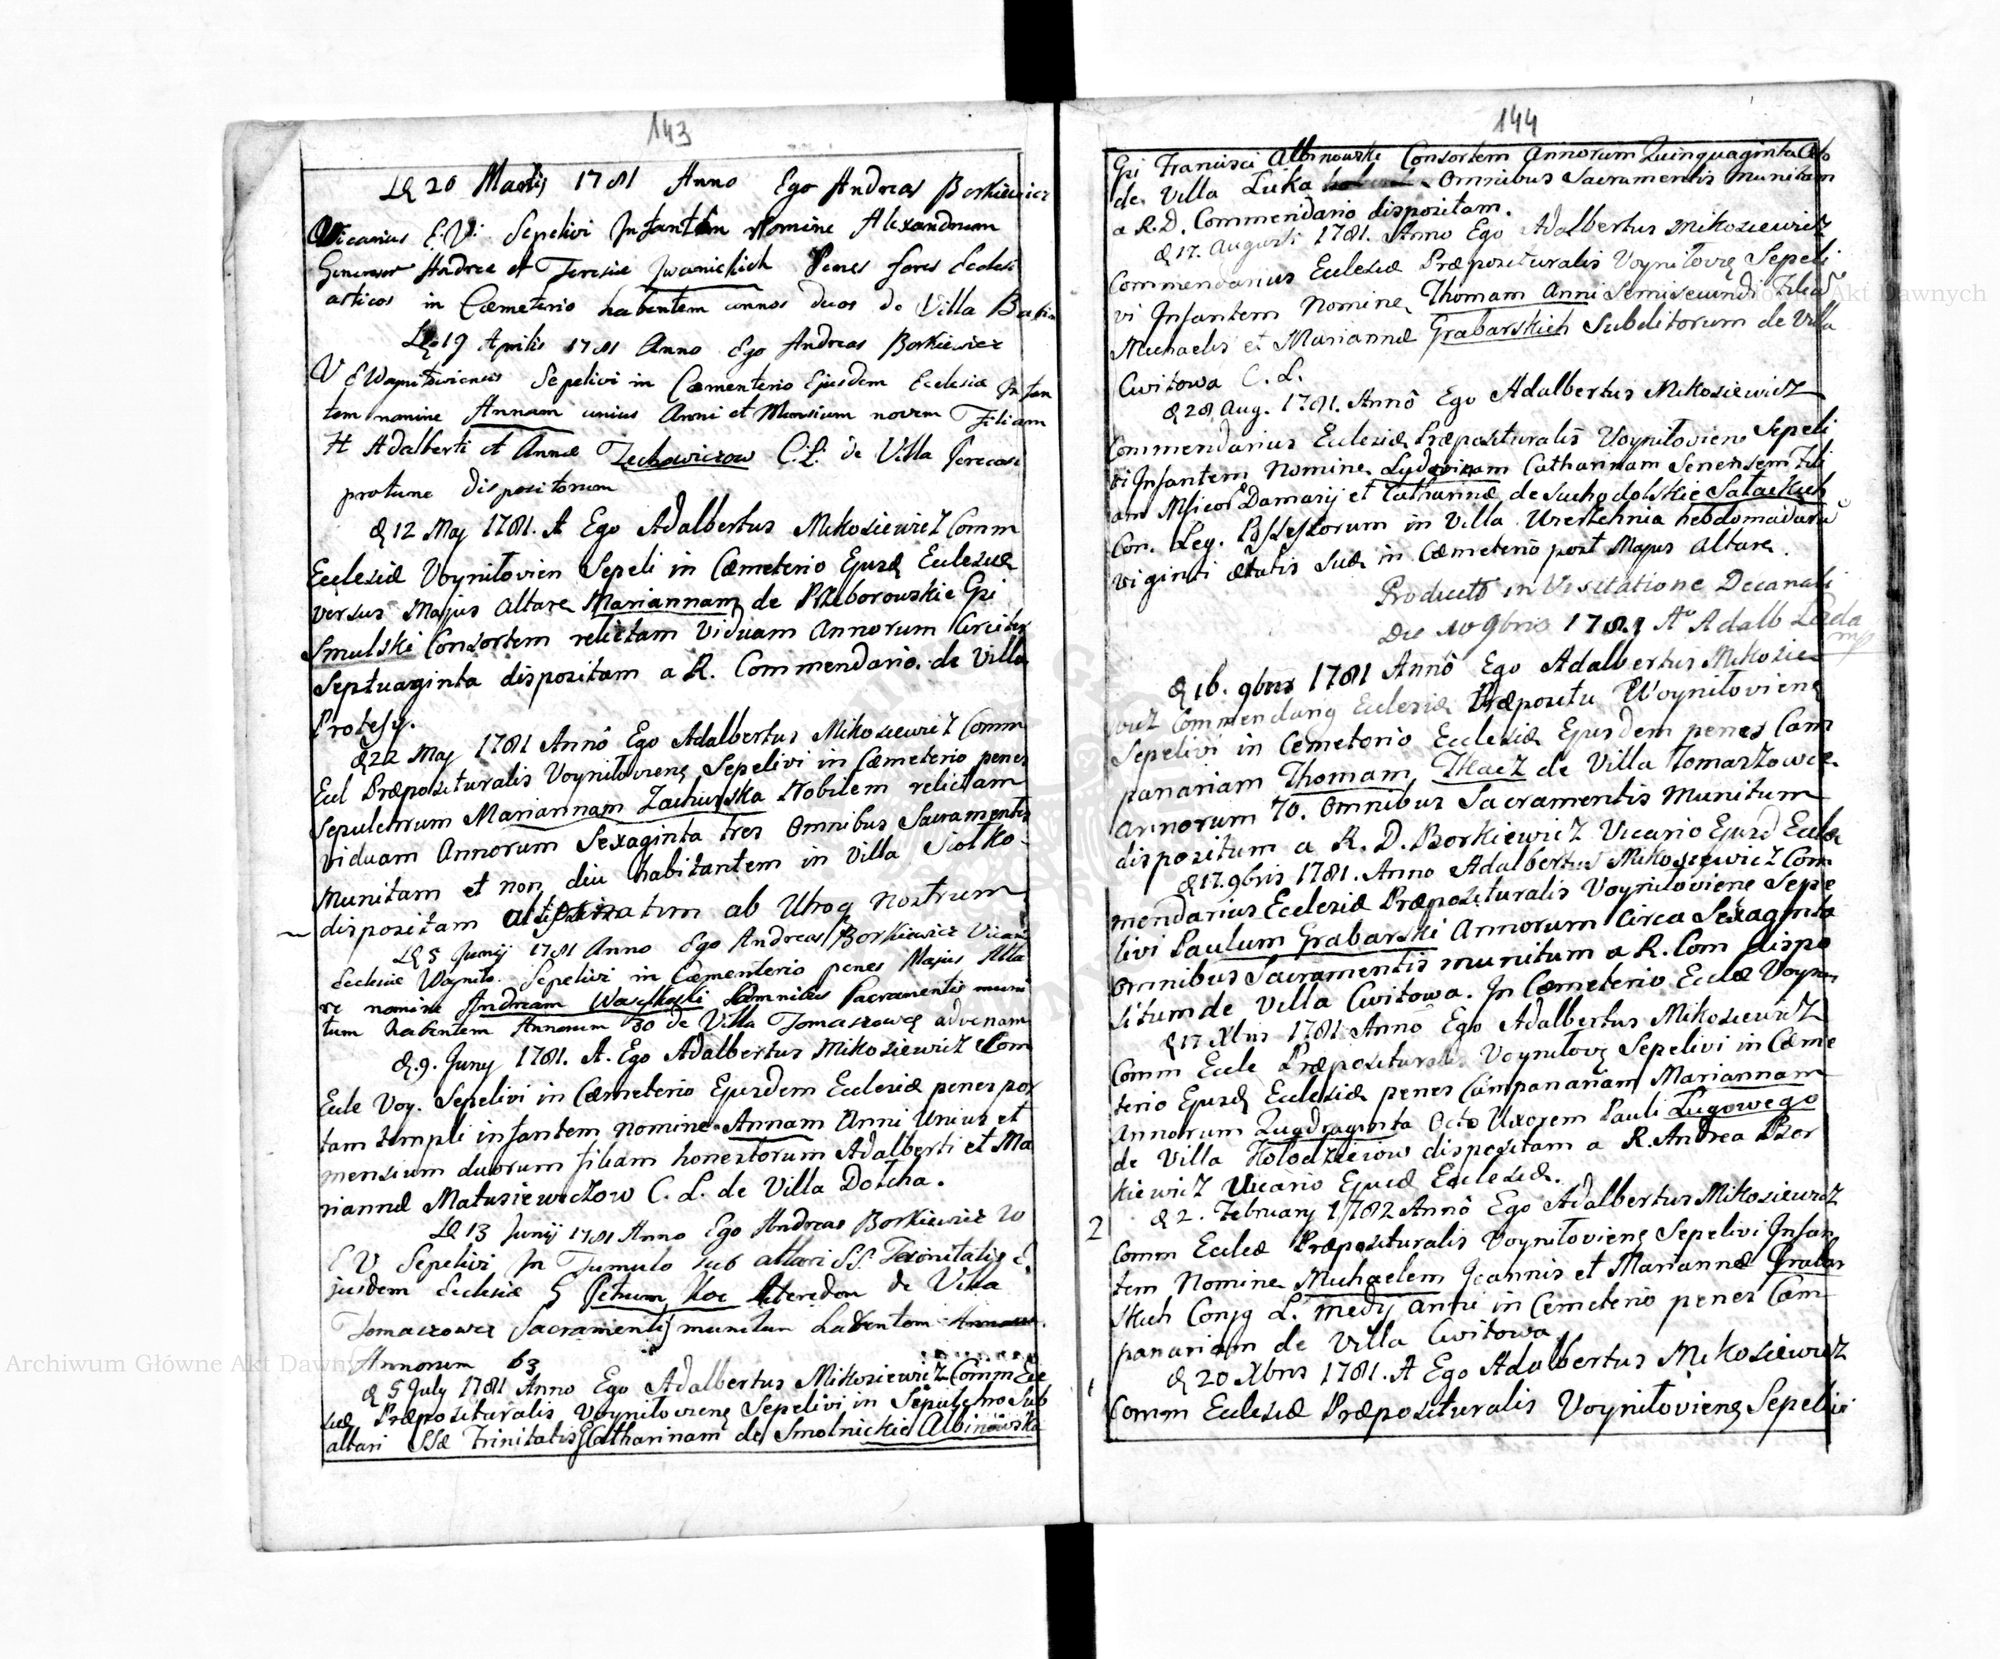 143
20 Martij 1781 Anno Ego Andreas Borkiewicz
Vicarius E. V. Sepelivi Infantem Nomine Alexandrum
Andreæ et Teresiæ Iwanickich Penes fores Ecclesi
asticos in Cæmeterio habentem annos duos de Villa
19 Aprilis 1781 Anno Ego Andreas Borkiewicz
V E Woyniłowiensis Sepelivi in Cæmenterio Ejusdem Ecclesiæ Infan
tem nomine Annam unius Anni et Mensium novem Filiam
H Adalberti et Annæ Zechowiczow C. L. de Villa
protunc dispositorum
d 12 Maj 1781. A Ego Adalbertus Mikosiewicz Comm
Ecclesiæ Voyniłovien Sepeli in Cæmeterio Ejusd Ecclesiæ
versus Majus altare Mariannam de Przeborowskie Gsi
Smulski Consortem relictam Viduam Annorum Circiter
Septuaginta dispositam a R. Commendario. de Villa
Protesy.
d 22 Maj 1781 Annô Ego Adalbertus Mikosiewicz Comm
Eccl Præposituralis Voyniłoviens Sepelivi in Cæmeterio penes
Sepulchrum Mariannam Zachurska Nobilem relictam
viduam Annorum Sexaginta tres Omnibus Sacramentis
munitam et non diu habitantem in Villa Siołko
dispositam ab Utroq nostrum
5 Junij 1781 Anno Ego Andreas Borkiewicz Vicari
Ecclesiæ Woyniło. Sepelivi in Cæmenterio penes Majus Alta
re nomine Andream Omnibus Sacramentis muni
tum habentem Annorum 30 de Villa Tomaszowce advenam
d. 9. Juny 1781. A. Ego Adalbertus Mikosiewicz Com
Eccle Voy. Sepelivi in Cæmeterio Ejusdem Ecclesiæ penes por
tam templi infantem nomine Annam Anni Unius et
mensium duorum filiam honestorum Adalberti et Ma
riannæ Matusiewiczow C. L. de Villa Dołcha.
13 Junij 1781 Anno Ego Andreas Borkiewicz
E V Sepelivi In Tumulo sub altari SS. Trinitatis E
jusdem Ecclesiæ G Petrum Koc Heredem de Villa
Tomaszowce Sacramentis munitum habentem
Annorum 63
d 5 July 1781 Anno Ego Adalbertus Mikosiewicz Comm Eccle
siæ Præposituralis Voyniłoviens Sepelivi in Sepulchro Sub
altari SSæ Trinitatis Catharinam de Smolnickie Albinowska
144
Gsi Francisci Albinowski Consortem Annorum Quinquaginta Octo
de Villa Łuka Omnibus Sacramentis munitam
a R. D. Commendario dispositam.
d 17. Augusti 1781. Anno Ego Adalbertus Mikosiewicz
Commendarius Ecclesiæ Præposituralis Voyniłovię Sepeli
vi Infantem Nomine Thomam Anni Semisecundi Filiũ
Michaelis et Mariannæ Grabarskich Subditorum de Villa
Cwitowa C. L.
d 28 Aug. 1781. Annô Ego Adalbertus Mikosiewicz
Commendarius Ecclesiæ Præposituralis Voyniłoviens Sepeli
vi Infantem Nomine Ludovicam Catharinam Senensem Fili
am Damasij et Catharinæ de Suchodolskie Sałackich
Con. Leg. Possessorum in Villa hebdomadarũ
viginti ætatis suæ in Cæmeterio post Majus Altare.
Product in Visitatione Decanali
Die 10 9bris 1781 Aº Adalb
d 16. 9bris 1781 Annô Ego Adalbertus Mikosie
wicz Commendarius Ecclesiæ Præpositu Woyniłoviens
Sepelivi in Cemeterio Ecclesiæ Ejusdem penes Cam
panariam Thomam Tkacz de Villa Tomaszowce
annorum 70. Omnibus Sacramentis munitum
dispositum a R. D. Borkiewicz Vicario Ejusd Ecclæ
d 17. 9bris 1781. Anno Adalbertus Mikosiewicz Com
mendarius Ecclesiæ Præposituralis Voyniłoviens Sepe
livi Paulum Grabarski Annorum Circa Sexaginta
Omnibus Sacramentis munitum a R. Com dispo
situm de Villa Cwitowa. In Cæmeterio Ecclæ Voyni
d 17 Xbris 1781 Annô Ego Adalbertus Mikosiewicz
Comm Eccle Præposituralis Voyniłovs Sepelivi in Cæme
terio Ejusd Ecclesiæ penes Campanariam Mariannam
Annorum Quadraginta Octo Uxorem Pauli Ługowego
de Villa Hołodziejow dispositam a R. Andrea Bor
kiewicz Vicario Ejusd Ecclesiæ.
2 d 2. February 1782 Annô Ego Adalbertus Mikosiewicz
Comm Ecclæ Præposituralis Voyniłoviens Sepelivi Infan
tem Nomine Michaelem Joannis et Mariannæ Grabar
skich Conjg L. medij anni in Cemeterio penes Cam
panariam de Villa Cwitowa
1 d 20 Xbris 1781. A Ego Adalbertus Mikosiewicz
Comm Ecclesiæ Præposituralis Voyniłoviens Sepelivi
Archiwum Główne Akt Dawnych
Archiwum Główne Akt Dawnych